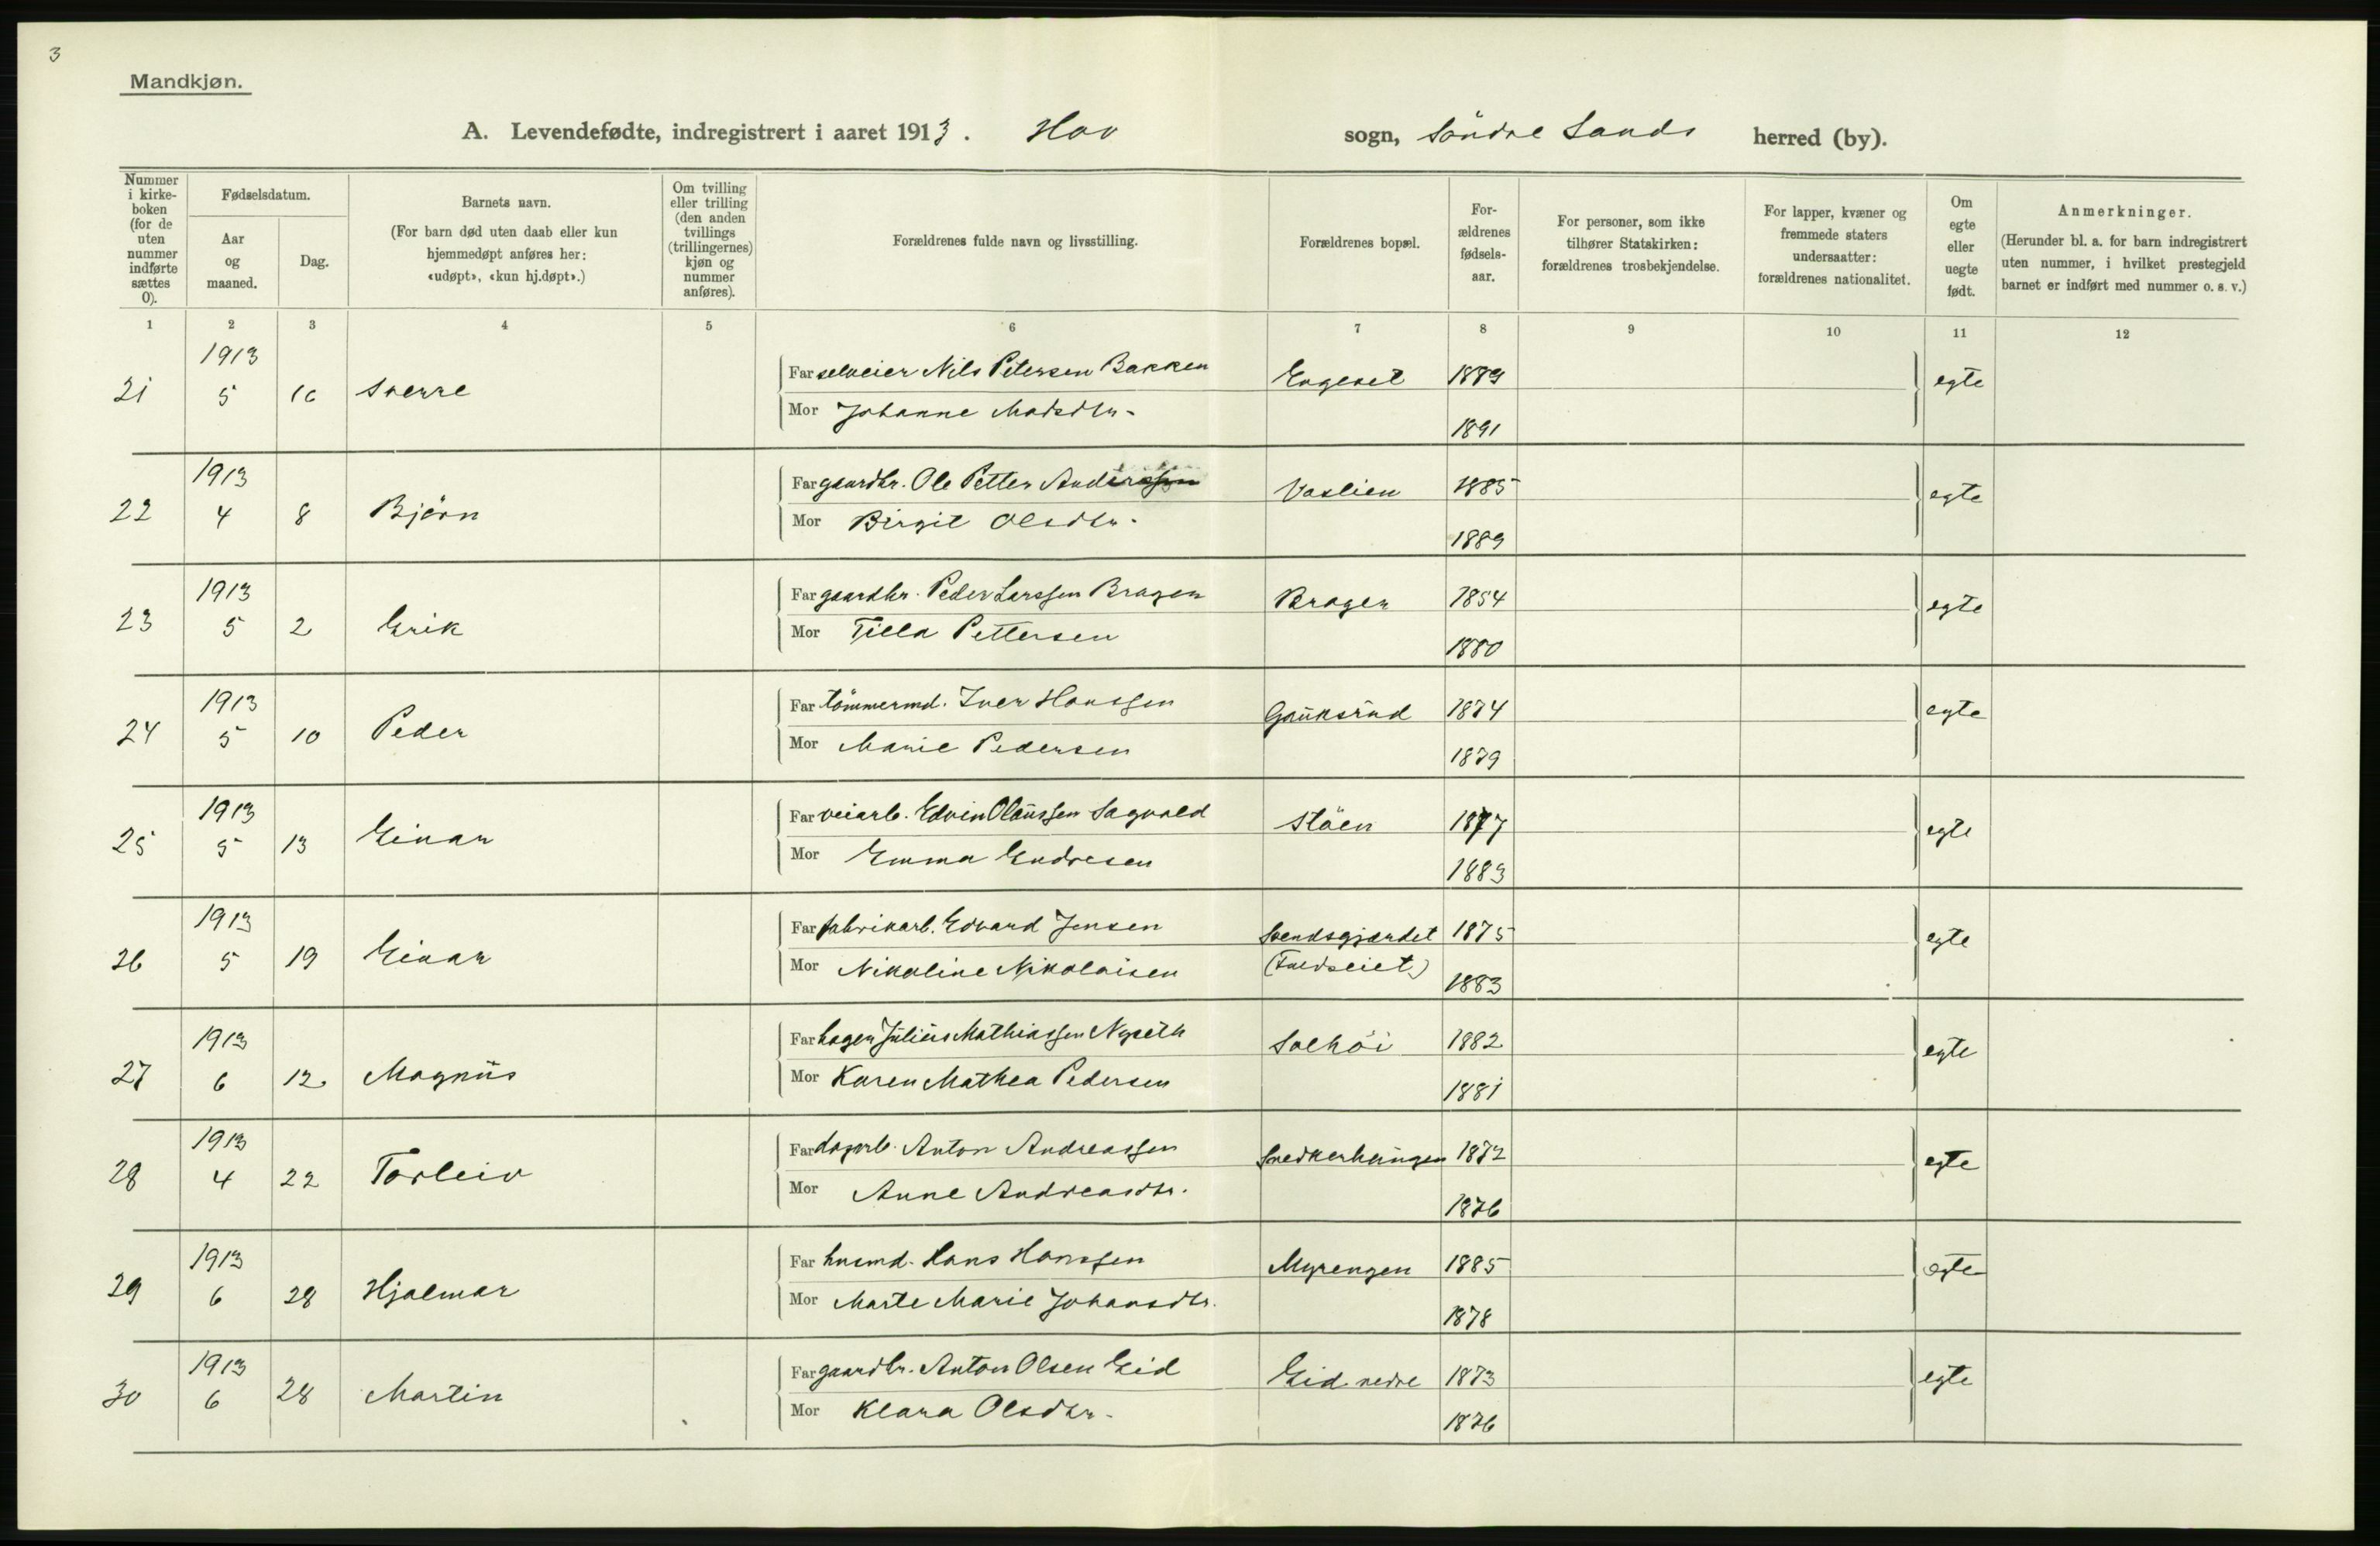 3
Mandkjøn.
A. Levendefødte, indregistrert i aaret 1913. Hov sogn, Söndre Lands herred (by).
Nummer i kirkeboken (for de uten nummer indførte sættes 0).
Fødselsdatum.
Aar og maaned.
Dag.
Barnets navn.
(For barn død uten daab eller kun hjemmedøpt anføres her: «udøpt», «kun hj.døpt».)
Om tvilling eller trilling (den anden tvillings (trillingernes) kjøn og nummer anføres).
Forældrenes fulde navn og livsstilling.
Forældrenes bopæl.
Forældrenes fødselsaar.
For personer, som ikke tilhører Statskirken: forældrenes trosbekjendelse.
For lapper, kvæner og fremmede staters undersaatter: forældrenes nationalitet.
Om egte eller uegte født.
Anmerkninger.
(Herunder bl. a. for barn indregistrert uten nummer, i hvilket prestegjeld barnet er indført med nummer o. s. v.)
1 2 3 4 5 6 7 8 9 10 11 12
21 1913 5 16 Sverre Far selveier Nils Petersen Bakken Engeset 1889 egte
Mor Johanne Madsdtr. 1891
22 1913 4 8 Björn Far gaardbr. Ole Petter Anderssen Vaslien 1885 egte
Mor Birgit Olsdtr. 1889
23 1913 5 2 Erik Far gaardbr. Peder Larssen Bragen Bragen 1854 egte
Mor Tilla Pettersen 1880
24 1913 5 10 Peder Far tömmermd. Iver Hanssen Gauksrud 1874 egte
Mor Marie Pedersen 1879
25 1913 5 13 Einar Far veiarb. Edvin Olaussen Sagvold Stöen 1877 egte
Mor Emma Endresen 1883
26 1913 5 19 Einar Far fabrikarb. Edvard Jensen Svendsgjærdet 1875 egte
Mor Nikoline Nikolaisen 1883
27 1913 6 12 Magnus Far Julius Mathiassen Nyseth Solhöi 1882 egte
Mor Karen Mathea Pedersen 1881
28 1913 4 22 Torleiv Far dagarb. Anton Andreassen 1872 egte
Mor Anne Andreasdtr. 1876
29 1913 6 28 Hjalmar Far husmd. Hans Hanssen Myrengen 1885 egte
Mor Marte Marie Johansdtr. 1878
30 1913 6 28 Martin Far gaardbr. Anton Olsen Eid Eid nedre 1873 egte
Mor Klara Olsdtr. 1876